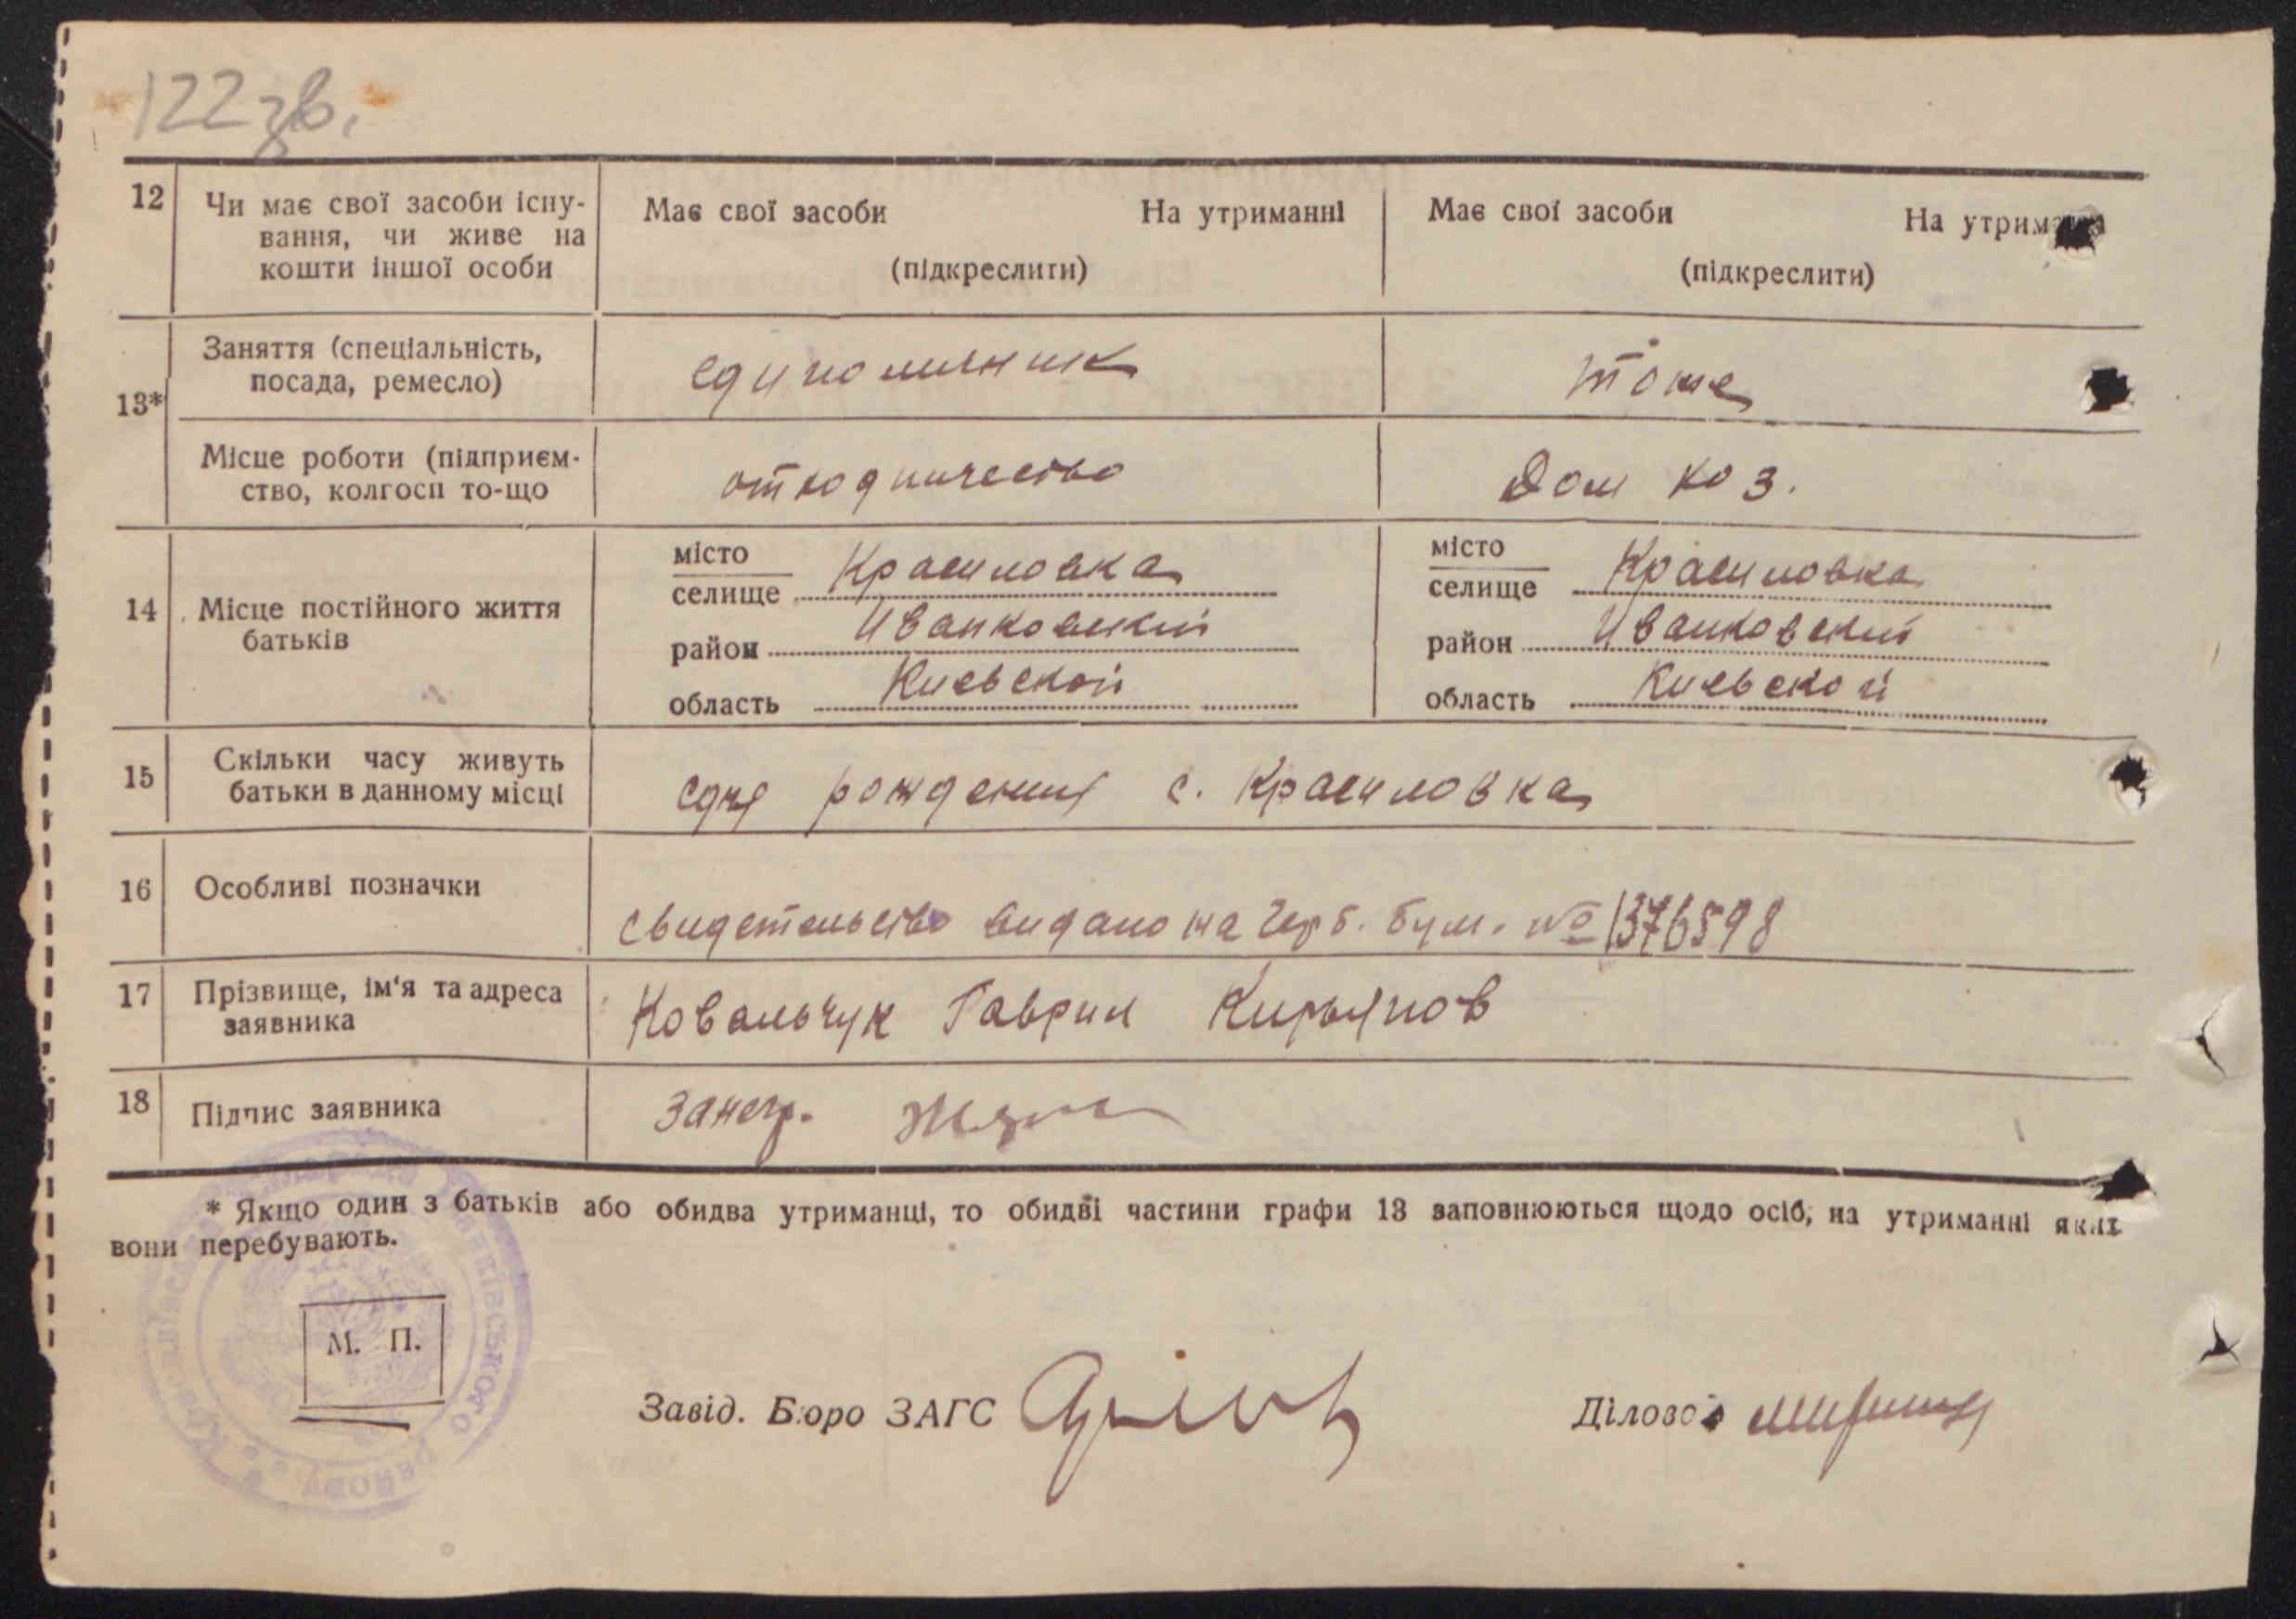 122 зв.
12 Чи має свої засоби існу-
вання, чи живе на
кошти іншої особи
Має свої засоби На утриманні
(підкреслити)
Має свої засоби На утриманні
(підкреслити)
13*
Заняття (спеціальність,
посада, ремесло)
единоличник
тоже
Місце роботи (підприєм-
ство, колгосп то-що
отходничество
Дом хоз.
14 Місце постійного життя
батьків
місто
селище Красиловка
район Иванковский
область Киевской
місто
селище Красиловка
район Иванковский
область Киевской
15 Скільки часу живуть
батьки в данному місці
сдня рождения с. Красиловка
16 Особливі позначки
свидетельство видано на герб. бум. № 1376598
17 Прізвище, ім'я та адреса
заявника
Ковальчук Гаврил Кирьянов
18 Підпис заявника
занегр.
* Якщо один з батьків або обидва утриманці, то обидві частини графи 13 заповнюються щодо осіб, на утриманні яких
вони перебувають.
М. П.
Завід. Бюро ЗАГС
Діловод